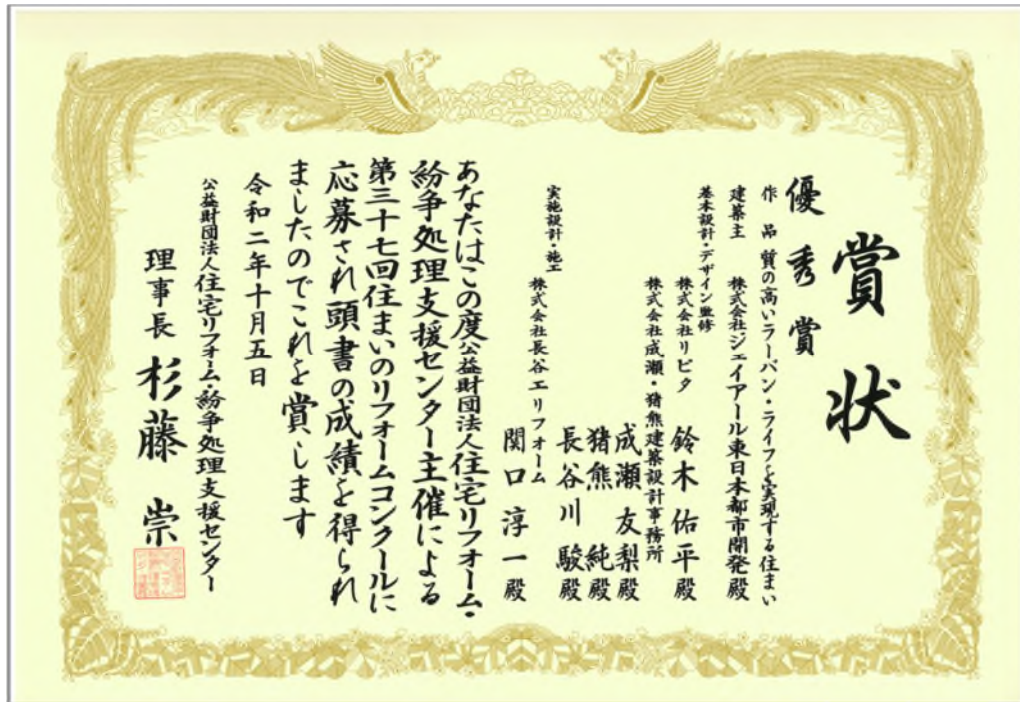 賞状
優秀賞
作品 質の高いラーバン・ライフを実現する住まい
建築主 株式会社ジェイアール東日本都市開発殿
基本設計・デザイン監修
株式会社リビタ 鈴木佑平殿
株式会社成瀬・猪熊建築設計事務所
成瀬友梨殿
猪熊純殿
長谷川駿殿
実施設計・施工
株式会社長谷工リフォーム
関口淳一殿
あなたはこの度公益財団法人住宅リフォーム・
紛争処理支援センター主催による
第三十七回住まいのリフォームコンクールに
応募され頭書の成績を得られ
ましたのでこれを賞します
令和二年十月五日
公益財団法人住宅リフォーム・紛争処理支援センター
理事長 杉藤崇